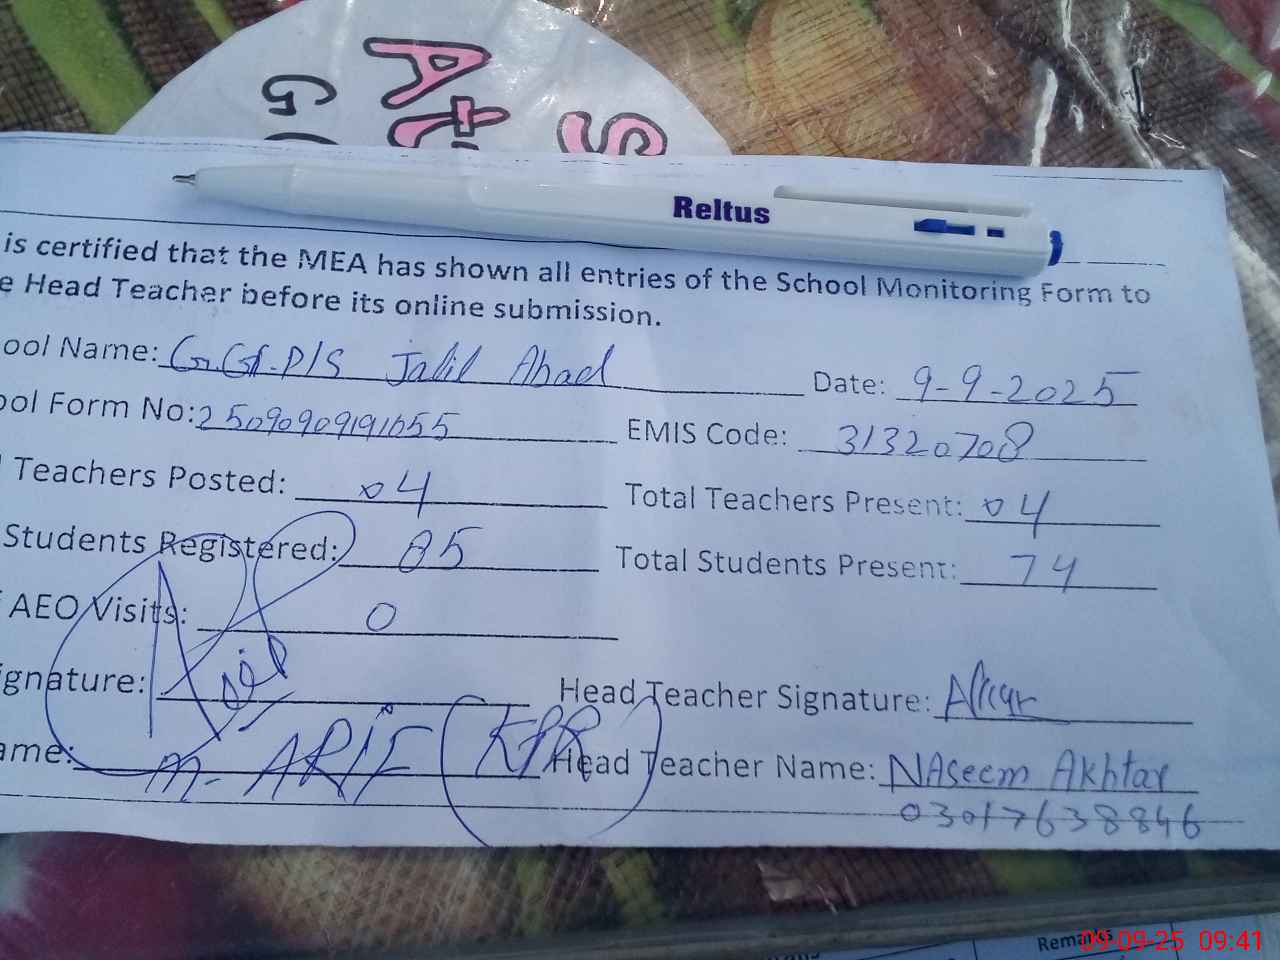 Reltus
is certified that the MEA has shown all entries of the School Monitoring Form to
e Head Teacher before its online submission.
ool Name: G.Gf.P/S Jalil Abad Date: 9-9-2025
ool Form No: 25090909191655 EMIS Code: 31320708
Teachers Posted: 04 Total Teachers Present: 04
Students Registered: 85 Total Students Present: 74
AEO Visits: 0
ignature: Head Teacher Signature:
ame: M. ARIF (KPR) Head Teacher Name: NAseem Akhtar
03017638846
Remarks
09-09-25 09:41